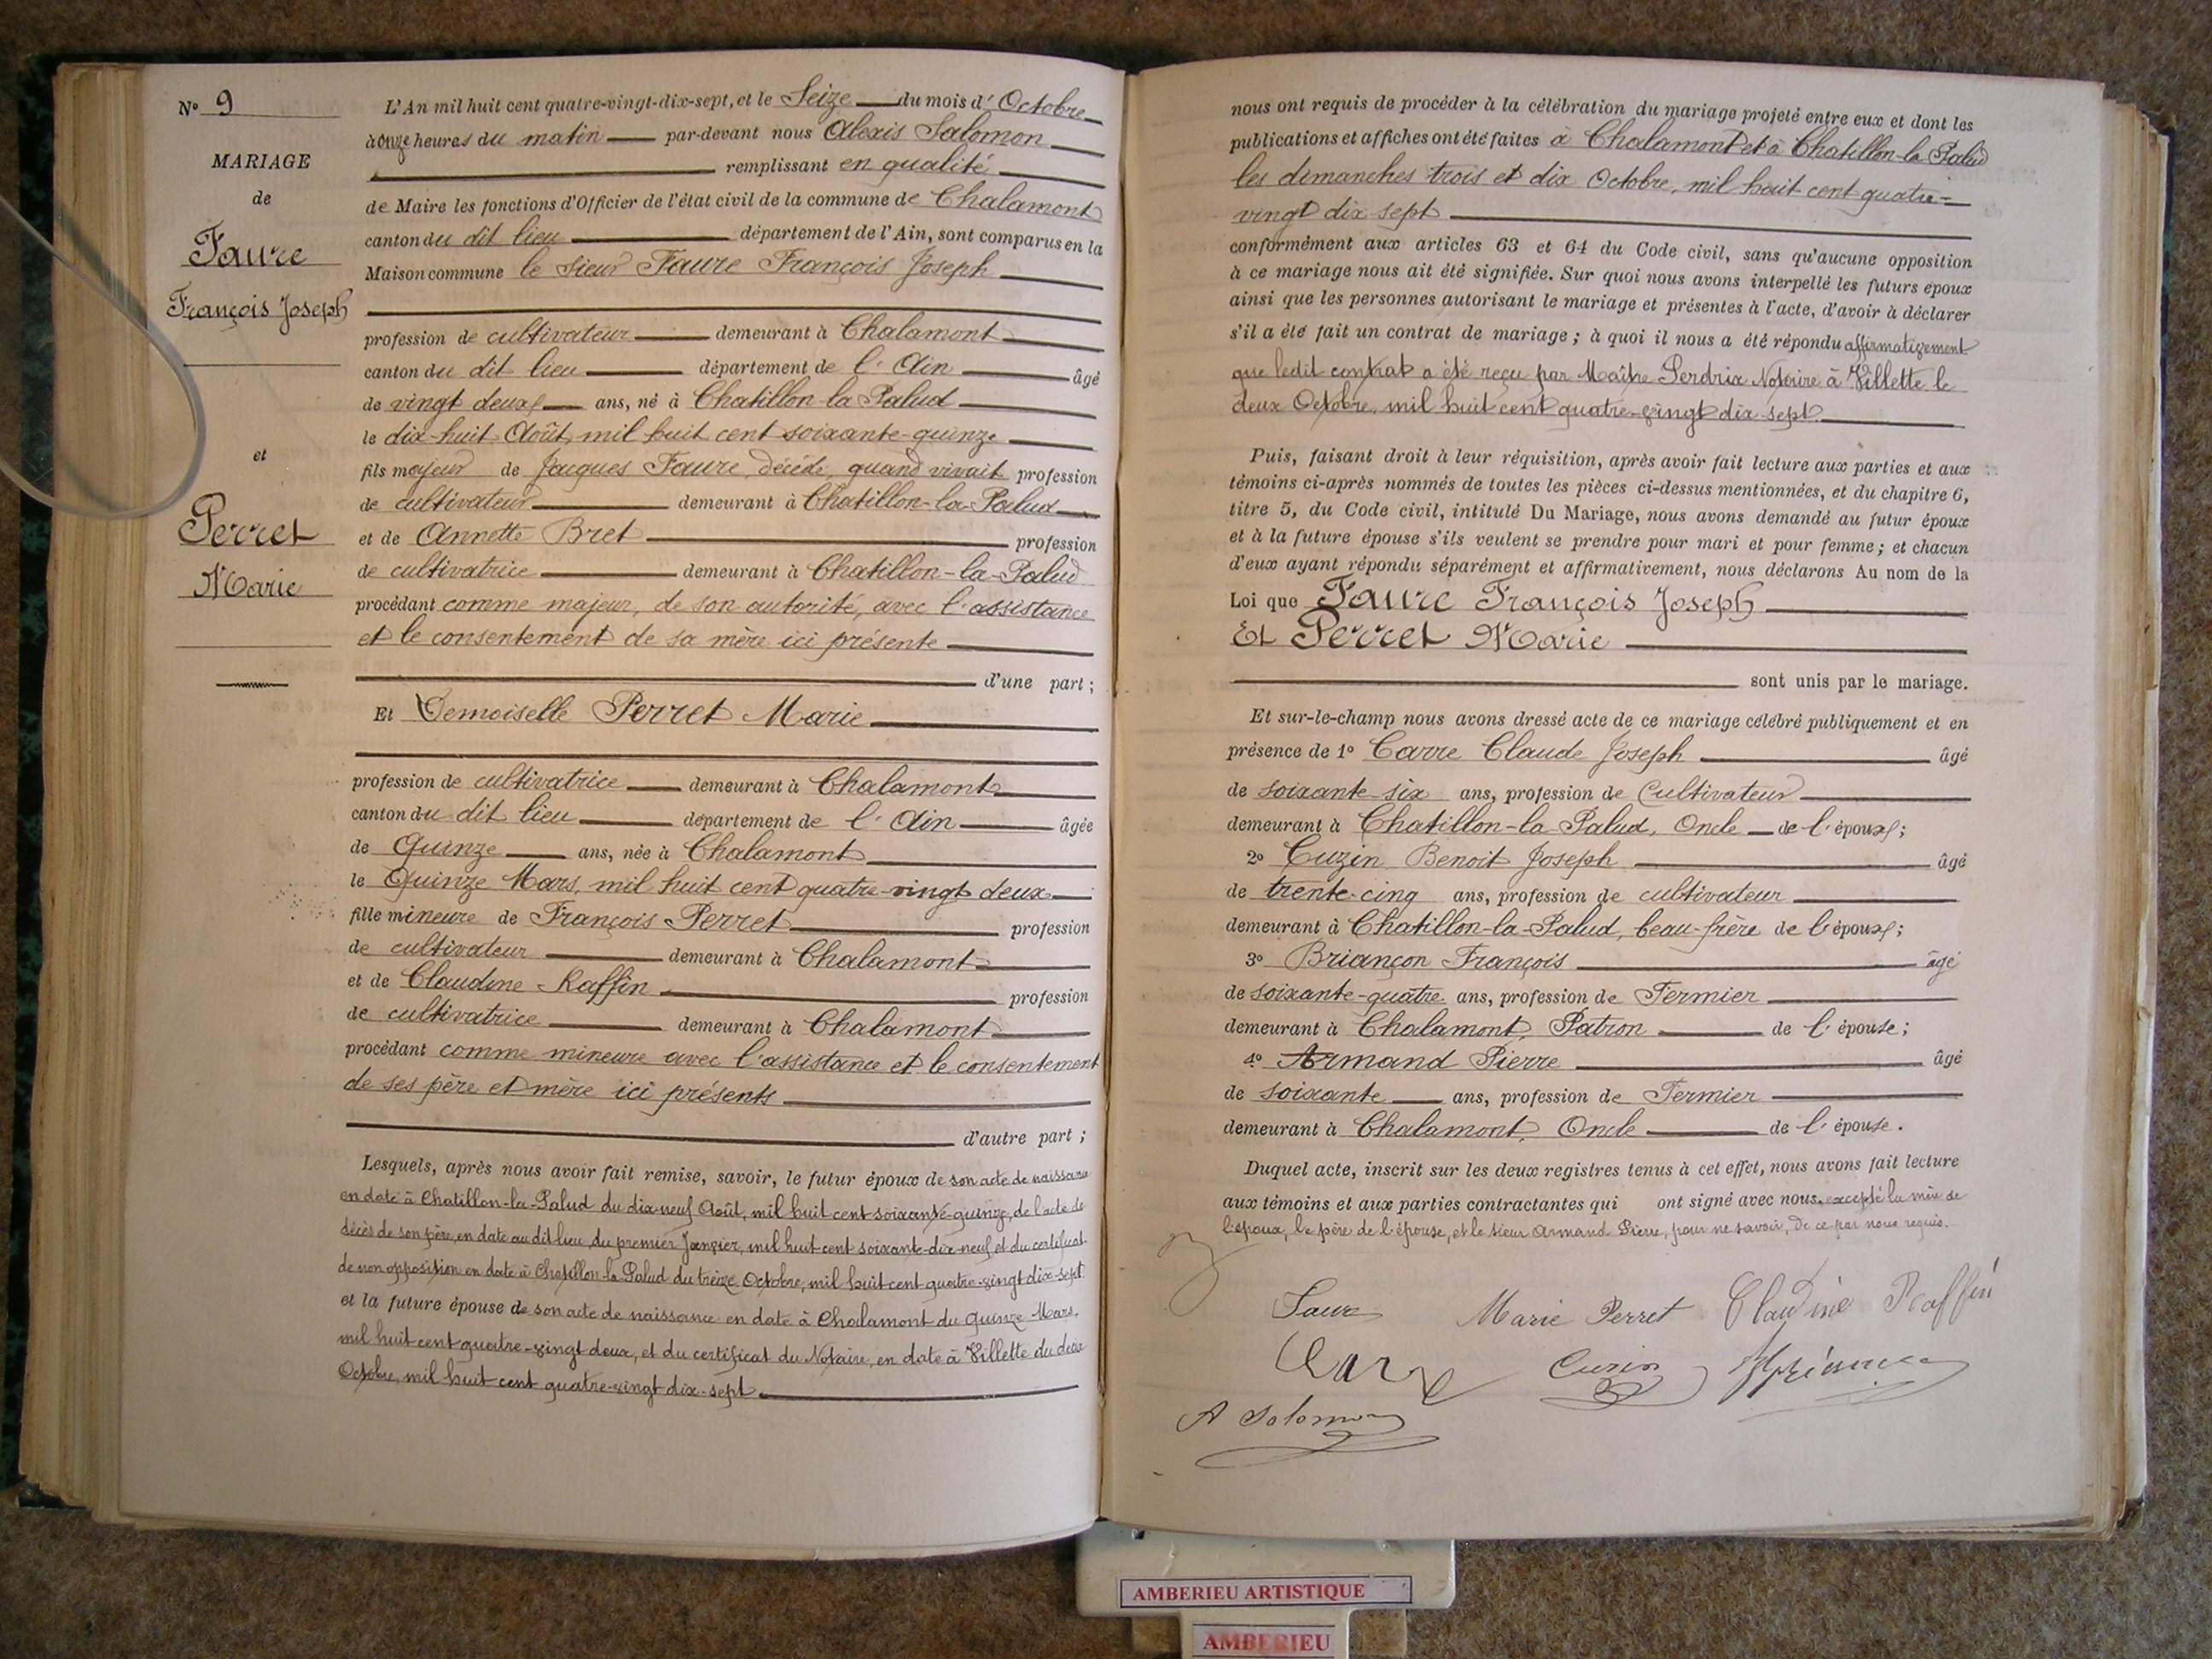 N° 9
MARIAGE
de
Faure
François Joseph
et
Perret
Marie
L'An mil huit cent quatre-vingt-dix-sept, et le Seize du mois d'Octobre
à onze heures du matin par-devant nous Alexis Salomon
remplissant en qualité
de Maire les fonctions d'Officier de l'état civil de la commune de Chalamont
canton du dit lieu département de l'Ain, sont comparus en la
Maison commune le sieur Faure François Joseph
profession de cultivateur demeurant à Chalamont
canton du dit lieu département de l'Ain âgé
de vingt deux ans, né à Chatillon-la-Palud
le dix-huit Août, mil huit cent soixante-quinze
fils majeur de Jacques Faure, décédé, quand vivait profession
de cultivateur demeurant à Chatillon-la-Palud
et de Annette Bret profession
de cultivatrice demeurant à Chatillon-la-Palud
procédant comme majeur, de son autorité, avec l'assistance
et le consentement de sa mère ici présente
d'une part;
Et Demoiselle Perret Marie
profession de cultivatrice demeurant à Chalamont
canton du dit lieu département de l'Ain âgée
de Quinze ans, née à Chalamont
le Quinze Mars, mil huit cent quatre-vingt deux
fille mineure de François Perret profession
de cultivateur demeurant à Chalamont
et de Claudine Raffin profession
de cultivatrice demeurant à Chalamont
procédant comme mineure avec l'assistance et le consentement
de ses père et mère ici présents
d'autre part;
Lesquels, après nous avoir fait remise, savoir, le futur époux de son acte de naissance
en date à Chatillon-la-Palud du dix-neuf Août, mil huit cent soixante-quinze, de l'acte de
décès de son père, en date au dit lieu du premier Janvier, mil huit cent soixante-dix-neuf et du certificat
de non opposition en date à Chatillon-la-Palud du treize Octobre, mil huit cent quatre-vingt dix-sept
et la future épouse de son acte de naissance en date à Chalamont du quinze Mars,
mil huit cent quatre-vingt deux, et du certificat du Notaire, en date à Villette du deux
Octobre, mil huit cent quatre-vingt dix-sept
nous ont requis de procéder à la célébration du mariage projeté entre eux et dont les
publications et affiches ont été faites à Chalamont et à Chatillon-la-Palud
les dimanches trois et dix Octobre, mil huit cent quatre-
vingt dix sept
conformément aux articles 63 et 64 du Code civil, sans qu'aucune opposition
à ce mariage nous ait été signifiée. Sur quoi nous avons interpellé les futurs époux
ainsi que les personnes autorisant le mariage et présentes à l'acte, d'avoir à déclarer
s'il a été fait un contrat de mariage; à quoi il nous a été répondu affirmativement
que ledit contrat a été reçu par Maître Perdrix Notaire à Villette le
deux Octobre, mil huit cent quatre-vingt dix-sept.
Puis, faisant droit à leur réquisition, après avoir fait lecture aux parties et aux
témoins ci-après nommés de toutes les pièces ci-dessus mentionnées, et du chapitre 6,
titre 5, du Code civil, intitulé Du Mariage, nous avons demandé au futur époux
et à la future épouse s'ils veulent se prendre pour mari et pour femme; et chacun
d'eux ayant répondu séparément et affirmativement, nous déclarons Au nom de la
Loi que Faure François Joseph
Et Perret Marie
sont unis par le mariage.
Et sur-le-champ nous avons dressé acte de ce mariage célébré publiquement et en
présence de 1° Carre Claude Joseph âgé
de soixante-six ans, profession de Cultivateur
demeurant à Chatillon-la-Palud, Oncle de l'époux;
2° Cuzin Benoit Joseph âgé
de trente-cinq ans, profession de cultivateur
demeurant à Chatillon-la-Palud, beau-frère de l'époux;
3° Briançon François âgé
de soixante-quatre ans, profession de Fermier
demeurant à Chalamont, Patron de l'épouse;
4° Armand Pierre âgé
de soixante ans, profession de Fermier
demeurant à Chalamont, Oncle de l'épouse.
Duquel acte, inscrit sur les deux registres tenus à cet effet, nous avons fait lecture
aux témoins et aux parties contractantes qui ont signé avec nous excepté la mère de
l'époux, le père de l'épouse, et le sieur Armand Pierre, pour ne savoir, de ce par nous requis.
Faure Marie Perret Claudine Raffin
Carre Cuzin
A Salomon
AMBERIEU ARTISTIQUE
AMBERIEU